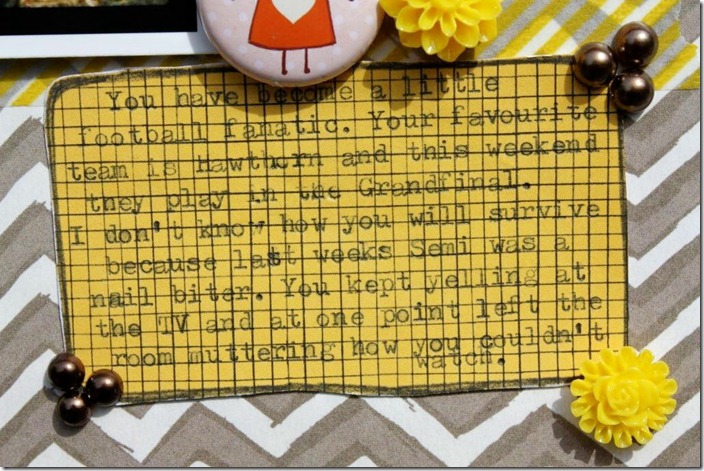 You have become a little
football fanatic. Your favourite
team is Hawthorn and this weekend
they play in the Grandfinal.
I don't know how you will survive
because last weeks Semi was a
nail biter. You kept yelling at
the TV and at one point left the
room muttering how you couldn't
watch.